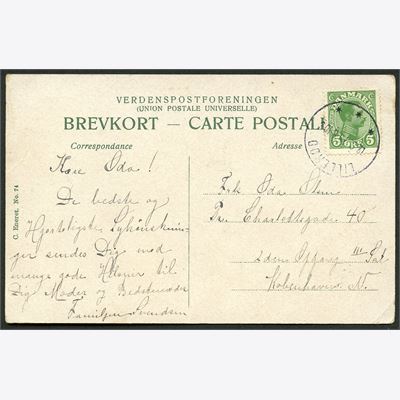 VERDENSPOSTFORENINGEN
(UNION POSTALE UNIVERSELLE)
BREVKORT — CARTE POSTALE
Correspondance
Adresse
DANMARK
5 ØRE 5
C. Eneret. No. 74
Kære Oda!
De bedste og
Hjerteligste Lykønsknin-
ger sendes Dig med
mange gode Hilsner til
Dig Moder og Bedstemoder
Familien Svendsen
Frk Oda Olsen
Charlottegade 40
2den Opgang III Sal
København N.